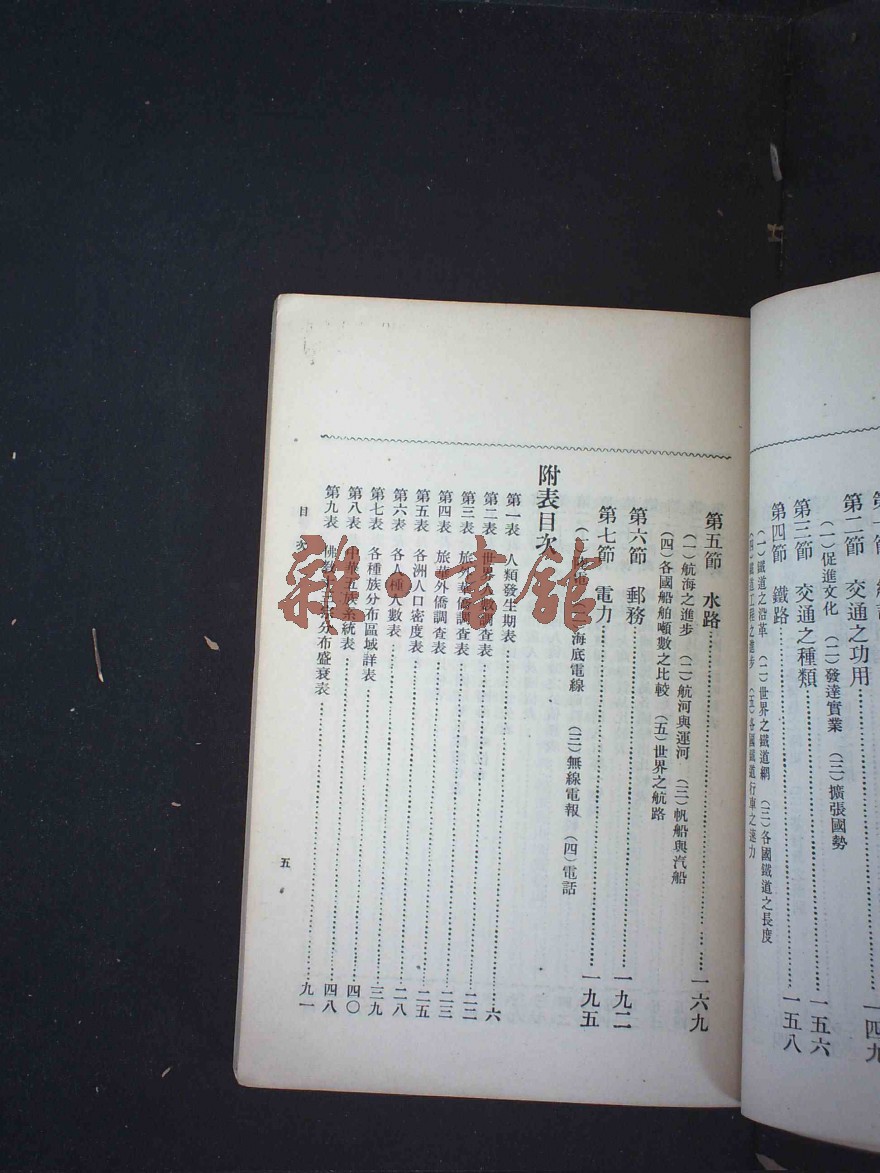 第二節 交通之功用……一四九
(一)促進文化 (二)發達實業 (三)擴張國勢
第三節 交通之種類……一五六
第四節 鐵路……一五八
(一)鐵道之沿革 (二)世界之鐵道網 (三)各國鐵道之長度
(四)鐵道工程之進步 (五)各國鐵道行車之速力
第五節 水路……一六九
(一)航海之進步 (二)航河與運河 (三)帆船與汽船
(四)各國船舶噸數之比較 (五)世界之航路
第六節 郵務……一九二
第七節 電力……一九五
(二)海底電線 (三)無線電報 (四)電話
附表目次
第一表 人類發生期表……六
第二表 世界人數調查表……二二
第三表 旅外華僑調查表……二三
第四表 旅華外僑調查表……二五
第五表 各洲人口密度表……二八
第六表 各人種人數表……三九
第七表 各種族分布區域詳表……四〇
第八表 中華五族系統表……四八
第九表 佛教分布盛衰表……九一
目次
五
雜·書館